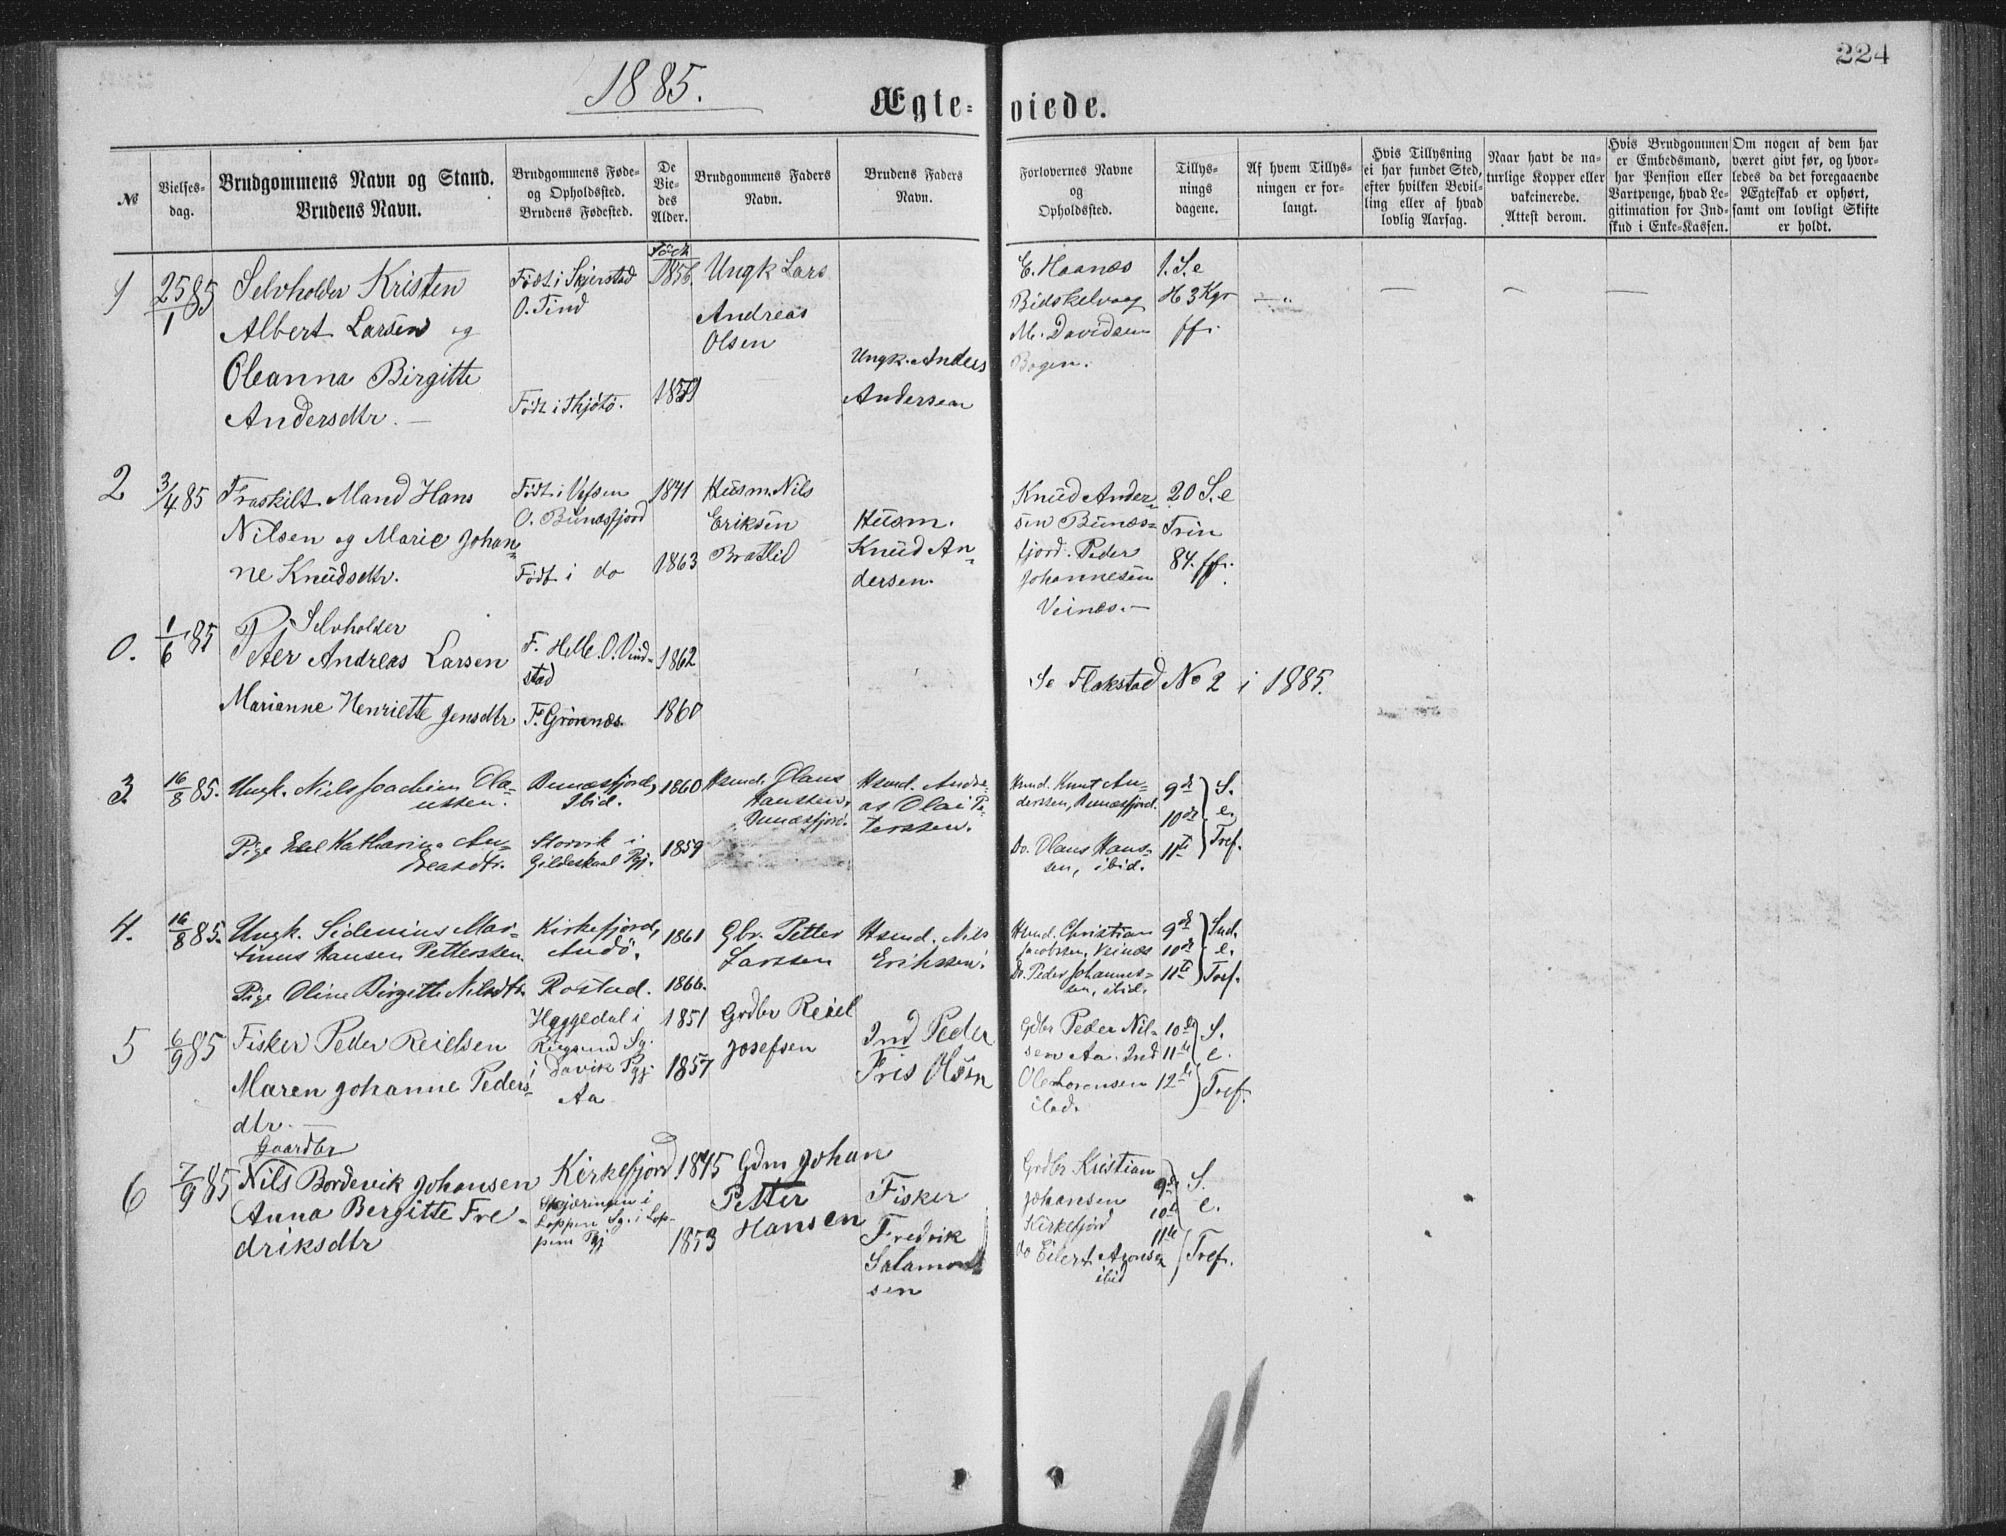 224
1885.
Ægte-viede.
№
Vielses-
dag.
Brudgommens Navn og Stand.
Brudens Navn.
Brudgommens Føde-
og Opholdsted.
Brudens Fødested.
De
Vie-
des
Alder.
Brudgommens Faders
Navn.
Brudens Faders
Navn.
Forlovernes Navne
og
Opholdsted.
Tillys-
nings
dagene.
Af hvem Tillys-
ningen er for-
langt.
Hvis Tillysning
ei har fundet Sted,
efter hvilken Bevil-
ling eller af hvad
lovlig Aarsag.
Naar havt de na-
turlige Kopper eller
vakcinerede.
Attest derom.
Hvis Brudgommen
er Embedsmand,
har Pension eller
Vartpenge, hvad Le-
gitimation for Ind-
skud i Enke-Kassen.
Om nogen af dem har
været givt før, og hvor-
ledes da det foregaaende
Ægteskab er ophørt,
samt om lovligt Skifte
er holdt.
1
25/1 85
Selvholder Kristen
Albert Larsen og
Oleanna Birgitte
Andersdtr. —
Født i Skjerstad
O. Tind
Født i Thjøtø.
Född
1856
1859
Ungk Lars
Andreas
Olsen
Ungk. Anders
Andersen
E. Haanæs
Bidskelvaag
M. Davidsen
Bogen.
1. S. e
H 3 Kgr
ff.
2
3/4 85
Fraskilt Mand Hans
Nilsen og Marie Johan-
ne Knudsdtr.
Født i Vefsen
O. Bunæsfjord
Født i do
1841
1863
Husm. Nils
Eriksen
Bratlid
Husm.
Knud An-
dersen.
Knud Ander-
sen Bunæs-
fjord. Peder
Johannesen
Veinæs. —
20 S. e
Trin
84. ff.
0.
1/6 85
Selvholder
Peter Andreas Larsen
Marianne Henriette Jensdtr
F. Helle. O. Vind-
stad
F. Grønnæs.
1862
1860
Se Flakstad No 2 i 1885.
3.
16/8 85.
Ungk. Nils Joachim Ola-
ussen.
Pige Else Katharina An-
dreasdtr.
Bunæsfjord,
Ibid.
Storvik i
Gildeskaal Pgj.
1860
1859
Hsmd. Olaus
Hanssen,
Bunæsfjord.
Hsmd. Andre-
as Olai Pe-
terssen.
Hsmd. Knut An-
derssen, Bunæsfjord.
Do. Olaus Hans-
sen, ibid.
9de
10de
11te
S.
e.
Tref.
4.
16/8 85.
Ungk. Sidenius Mar-
tinus Hansen Petterssen.
Pige Oline Birgitte Nilsdtr.
Kirkefjord,
Andø.
Rostad.
1861
1866.
Gbr. Petter
Larssen
Hsmd. Nils
Erikssen.
Hsmd. Christian
Jacobsen, Veinæs
Do. Peder Johannes-
sen, ibid.
9de
10de
11te
Snd.
e.
Tref.
5
6/9 85
Fisker Peder Reielsen
Maren Johanne Peders-
dtr. —
Haggedal i
Rugsund Sg.
i Davik Pgj.
Aa
1851
1857
Grdbr Reiel
Josefsen
Ind Peder
Fris Høen
Gdbr Peder Nil-
sen Aa. Ind
Ole Lorensen
ibid.
10de
11te
12te
S.
e.
Tref.
6
7/9 85
Gaardbr
Nils Bordevik Johansen
Anna Bergitte Fre-
driksdtr
Kirkefjord
Skjæringen i
Loppen Sg. i Lop-
pen Pgj
1845
1853
Gdm Johan
Petter
Hansen
Fisker
Fredrik
Salamon
sen
Grdbr Kristian
Johansen
Kirkefjord
do Eilert
ibid
9de
10de
11te
S.
e.
Tref.